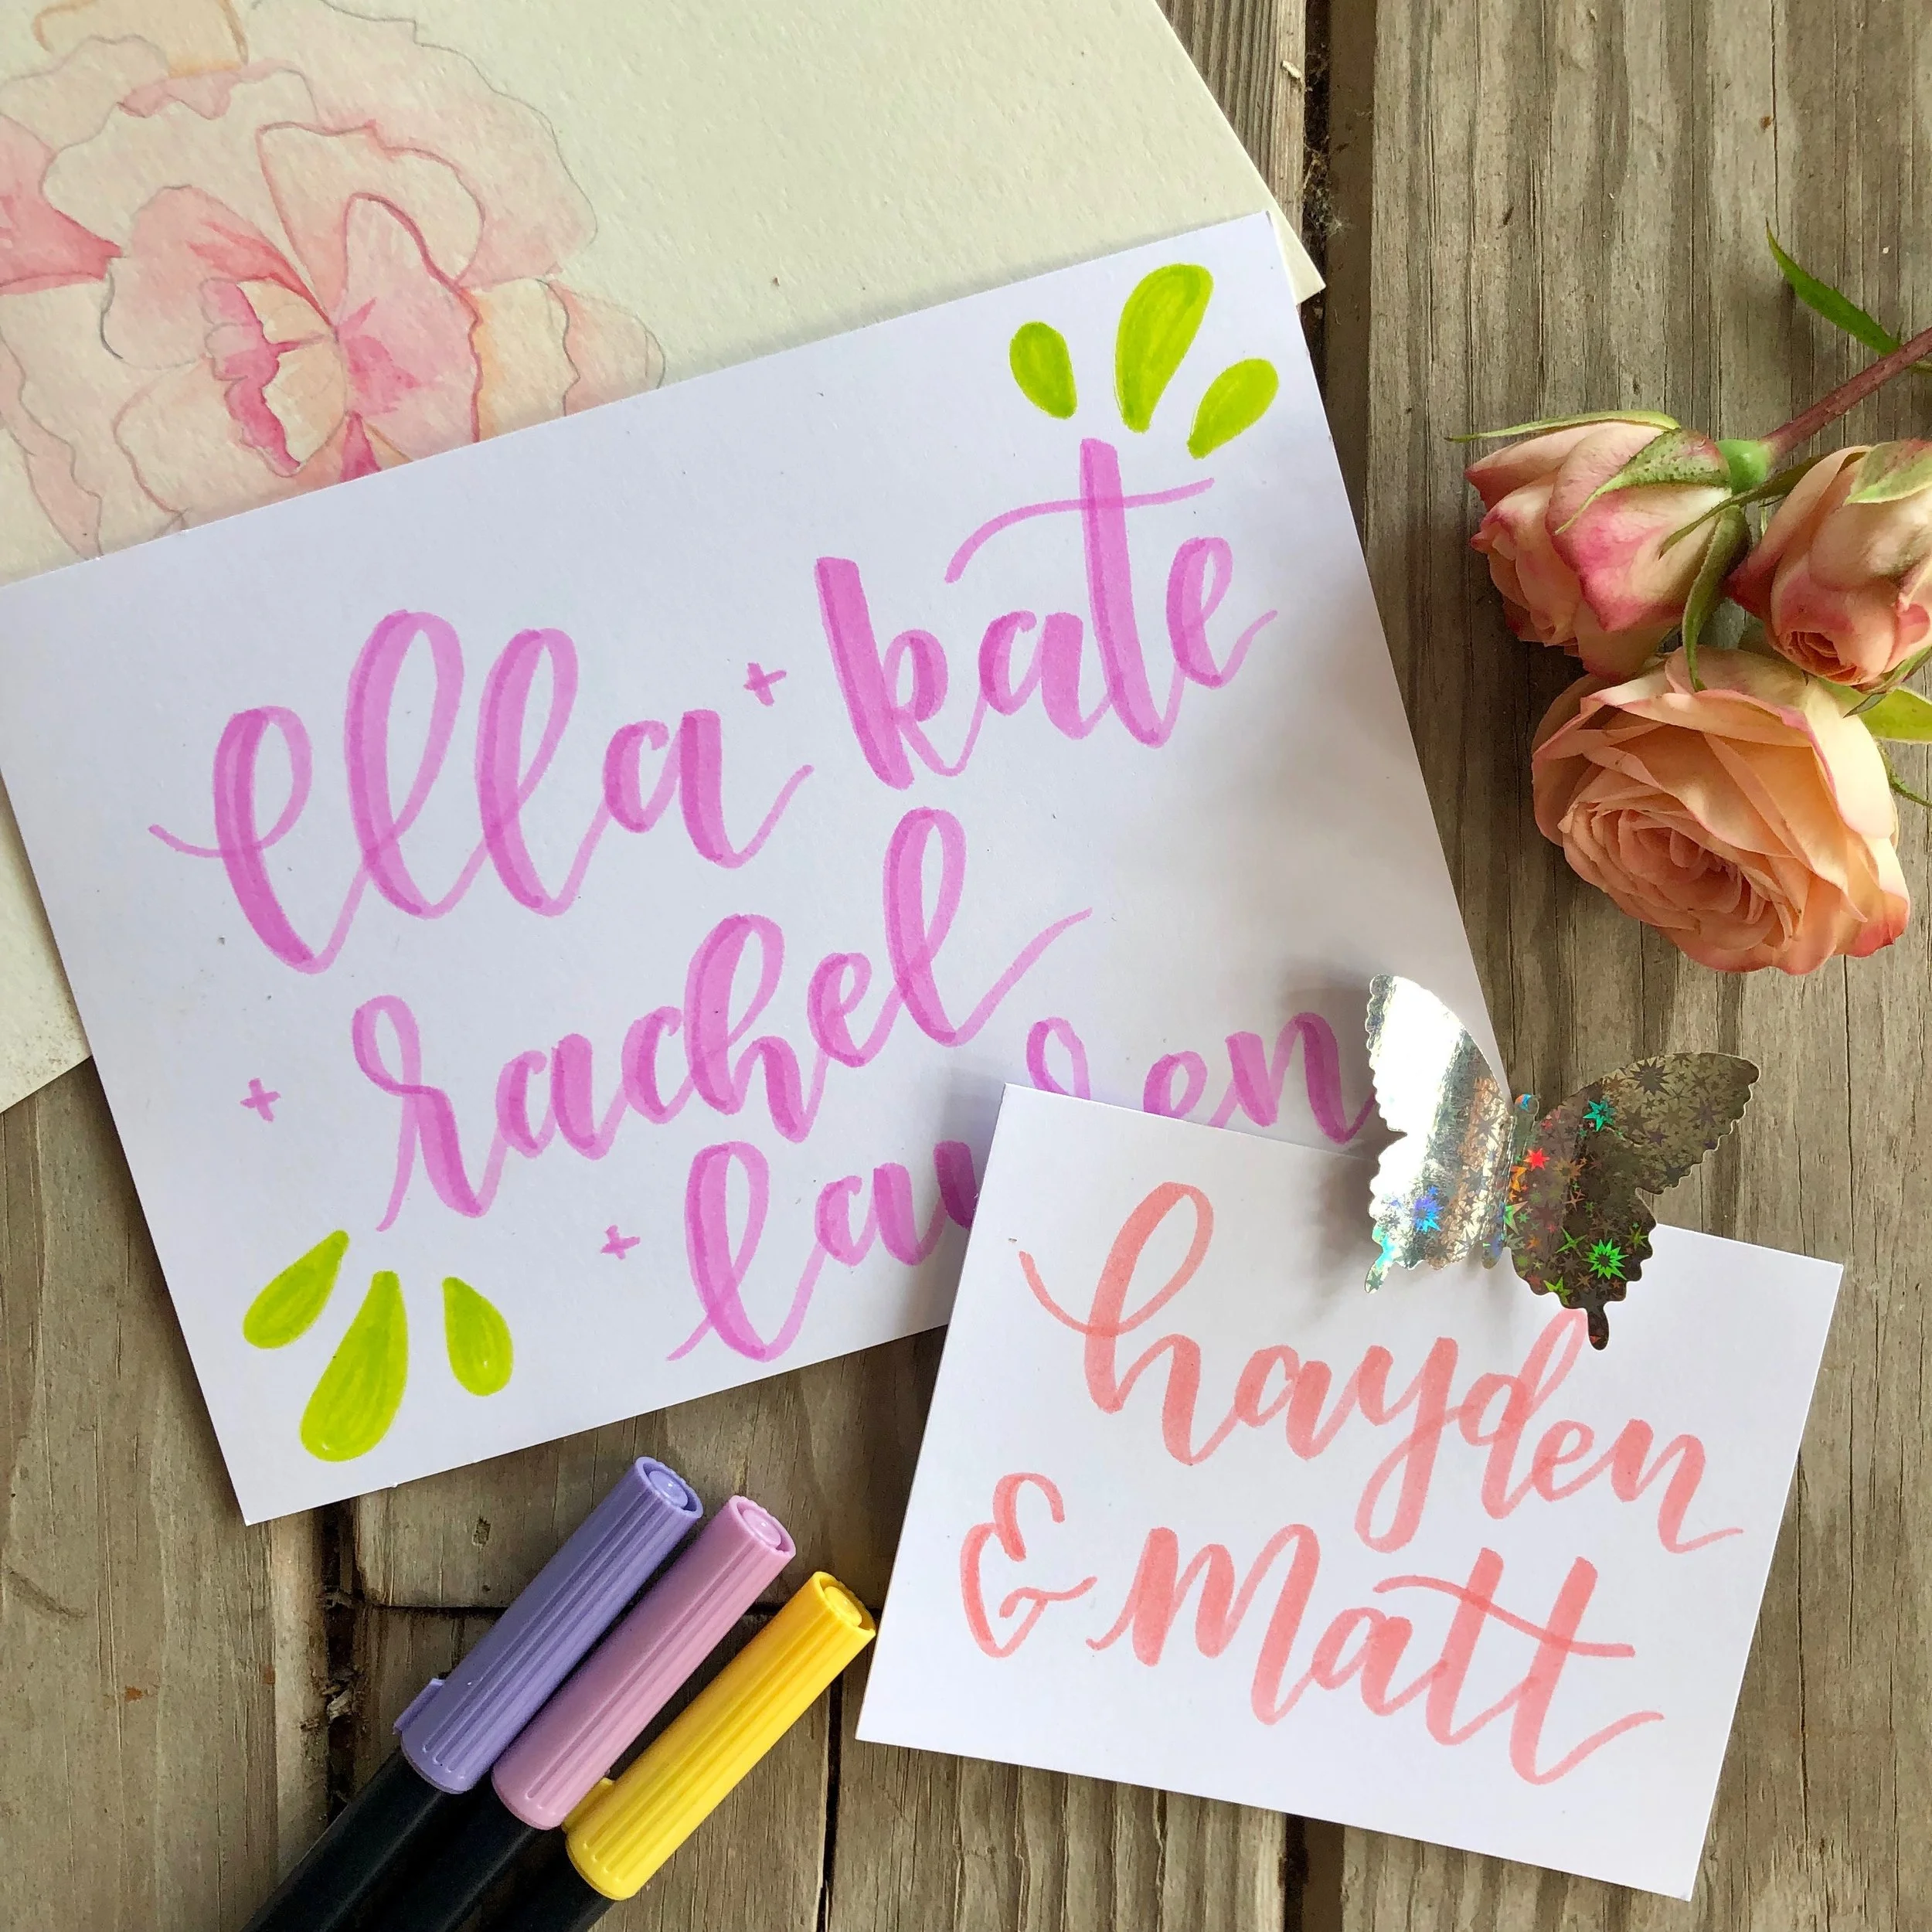 ella + kate
+ rachel
+ lauren
hayden
& matt